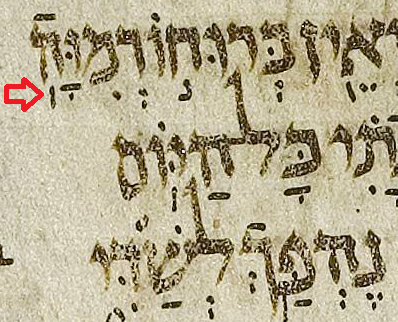 וְאֵין בְּרוּחוֹ רְמִיָּה
תִי כָּל הַיּוֹם
נֶהְפַּךְ לְשַׁדִּי